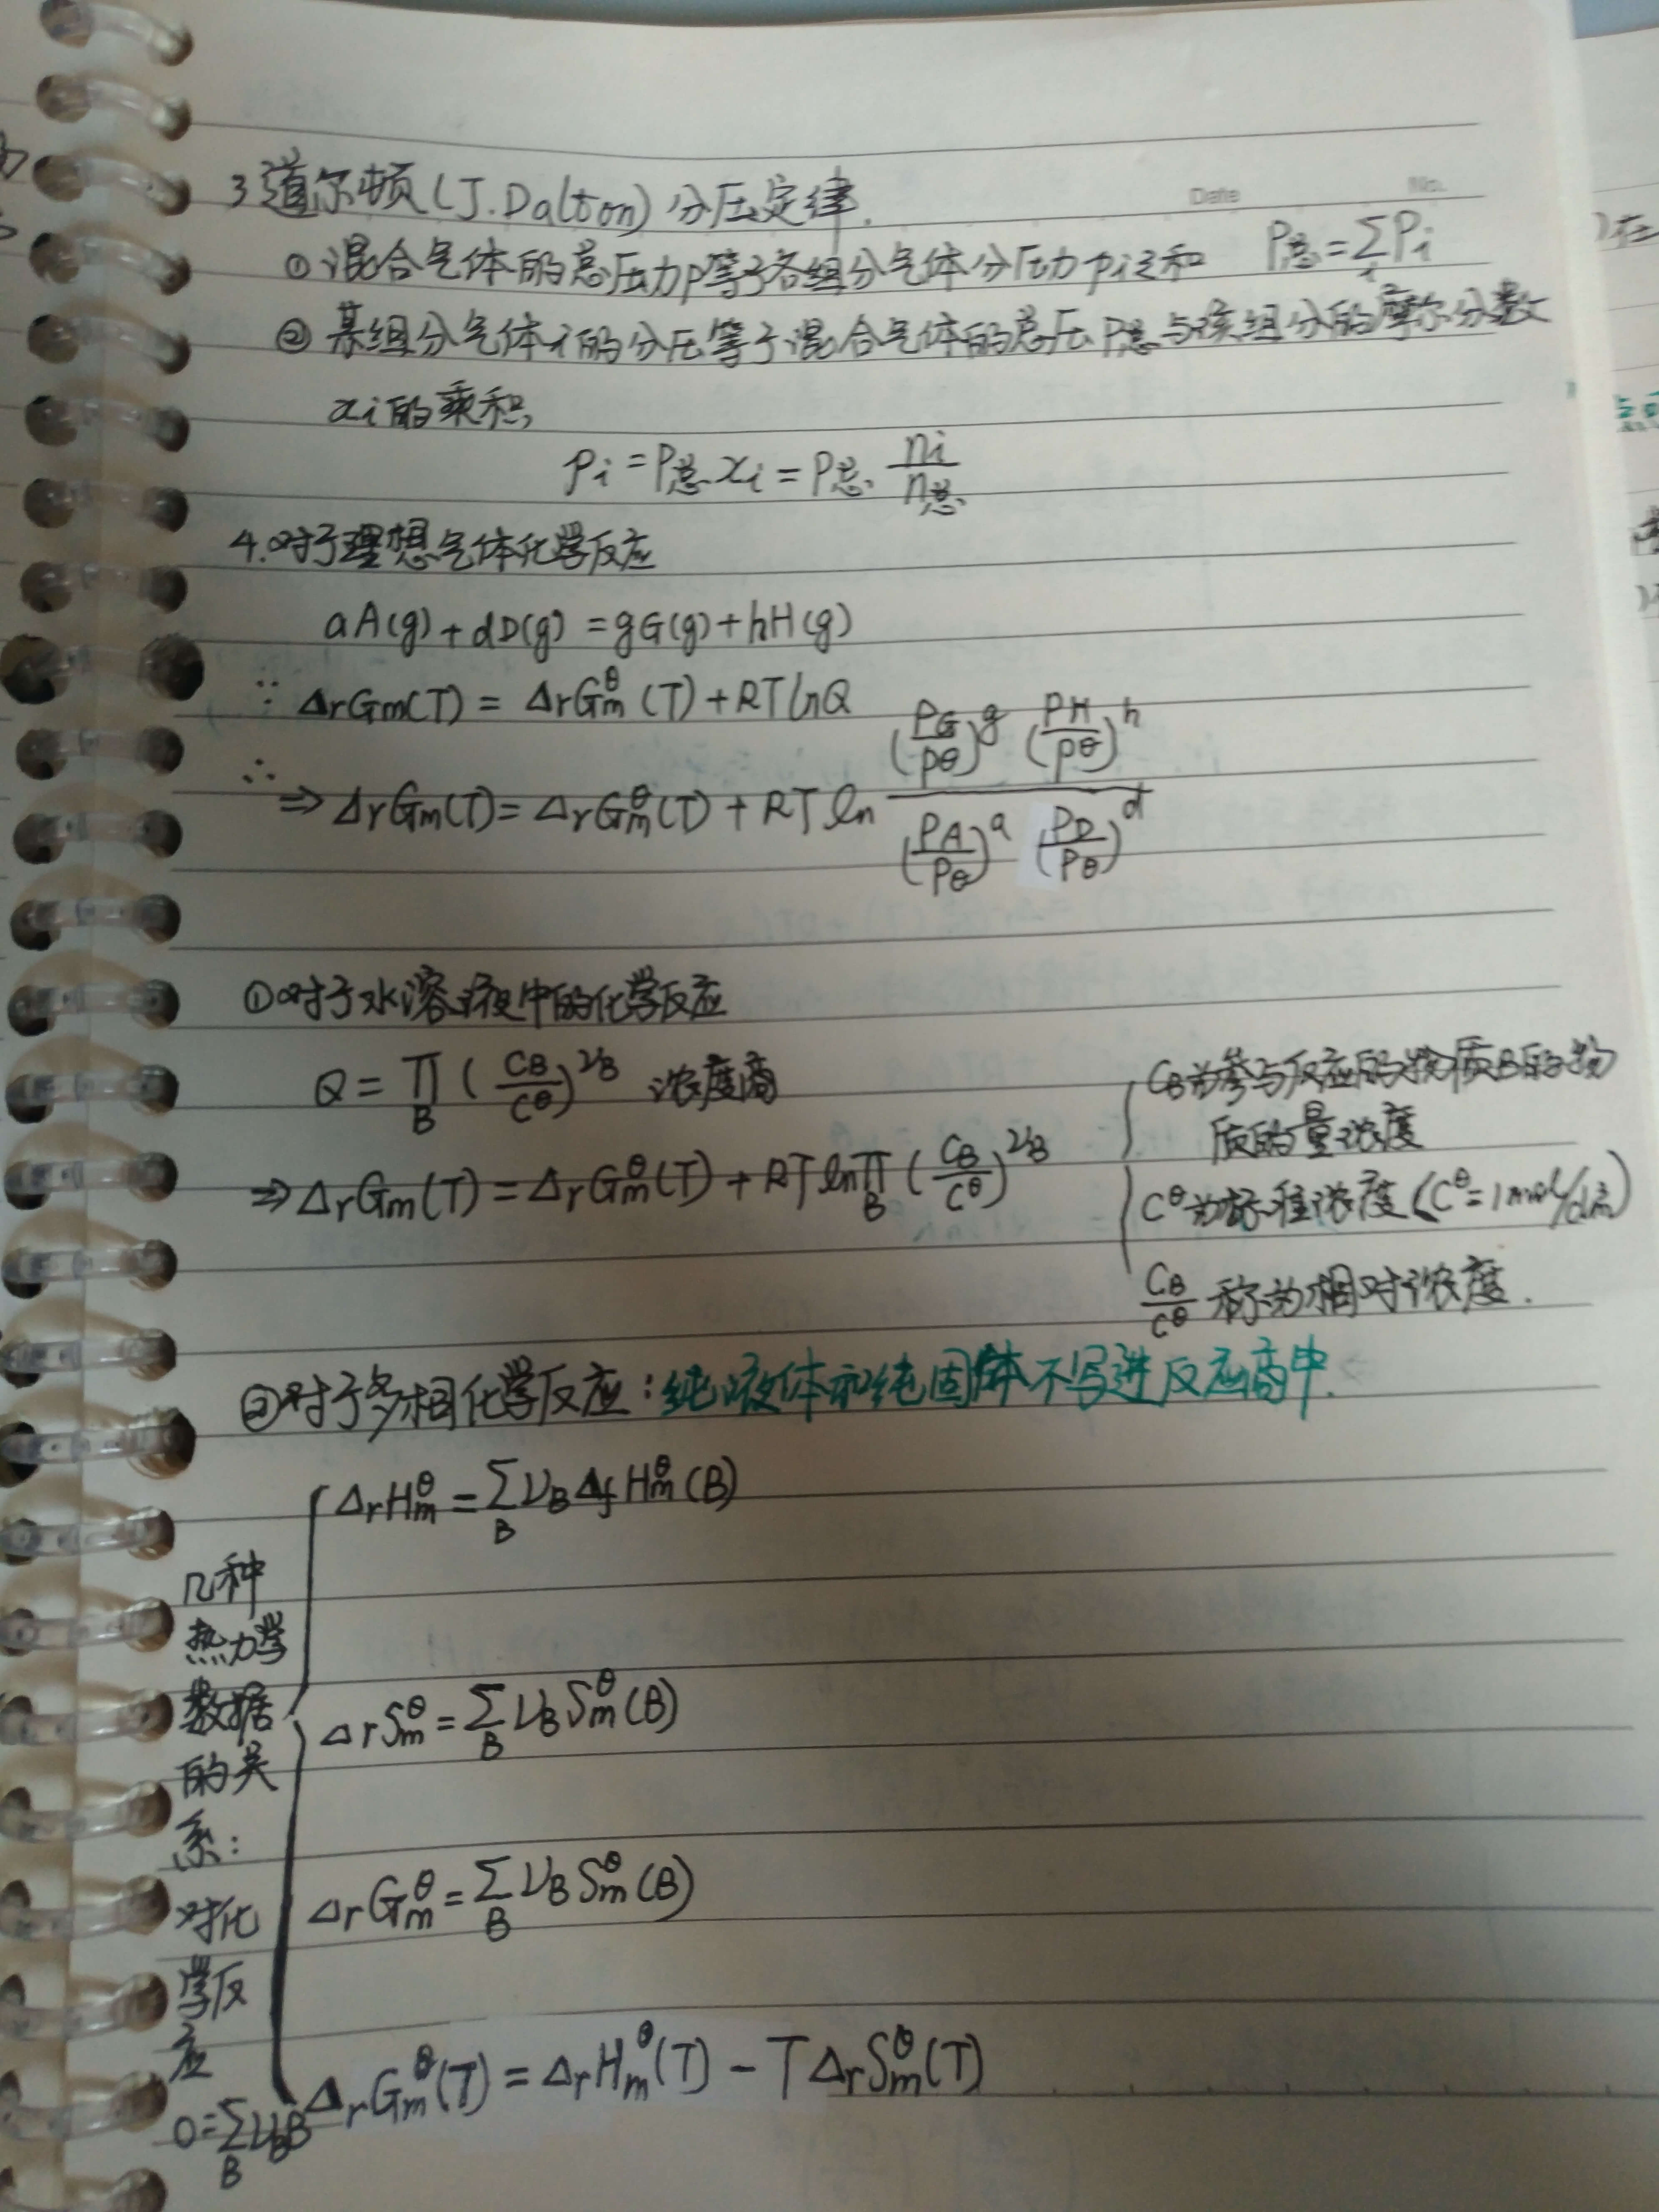 Date No.
3 道尔顿(J.Dalton)分压定律.
① 混合气体的总压力p等于各组分气体分压力pi之和 P总=∑i Pi
② 某组分气体i的分压等于混合气体的总压P总与该组分的摩尔分数
xi的乘积,
pi = P总xi = P总·ni/n总
4.对于理想气体化学反应
aA(g)+dD(g)=gG(g)+hH(g)
∵ ΔrGm(T) = ΔrGmθ(T)+RTlnQ
∴
⇒ ΔrGm(T)=ΔrGmθ(T)+RT ln (PG/Pθ)^g (PH/Pθ)^h / (PA/Pθ)^a (PD/Pθ)^d
①对于水溶液中的化学反应
Q = ∏B (CB/Cθ)^νB 浓度商
⇒ΔrGm(T)=ΔrGmθ(T)+RT ln∏B (CB/Cθ)^νB
CB为参与反应的物质B的物
质的量浓度
Cθ为标准浓度(Cθ=1mol/dm³)
CB/Cθ 称为相对浓度.
②对于多相化学反应:纯液体和纯固体不写进反应商中.
几种
热力学
数据
的关
系:
对化
学反
应
0=∑B νBB
ΔrHmθ=∑B νBΔfHmθ(B)
ΔrSmθ=∑B νBSmθ(B)
ΔrGmθ=∑B νBSmθ(B)
ΔrGmθ(T)=ΔrHmθ(T)-TΔrSmθ(T)